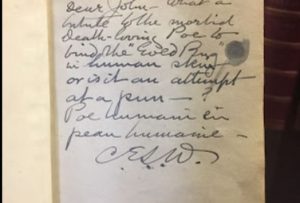 Dear John – What a
tribute to the morbid
Death-loving Poe to
bind the "Gold Bug"
in human skin
or is it an attempt
at a pun – ?
Poe humani en
peau humaine –
C.E.S.W.